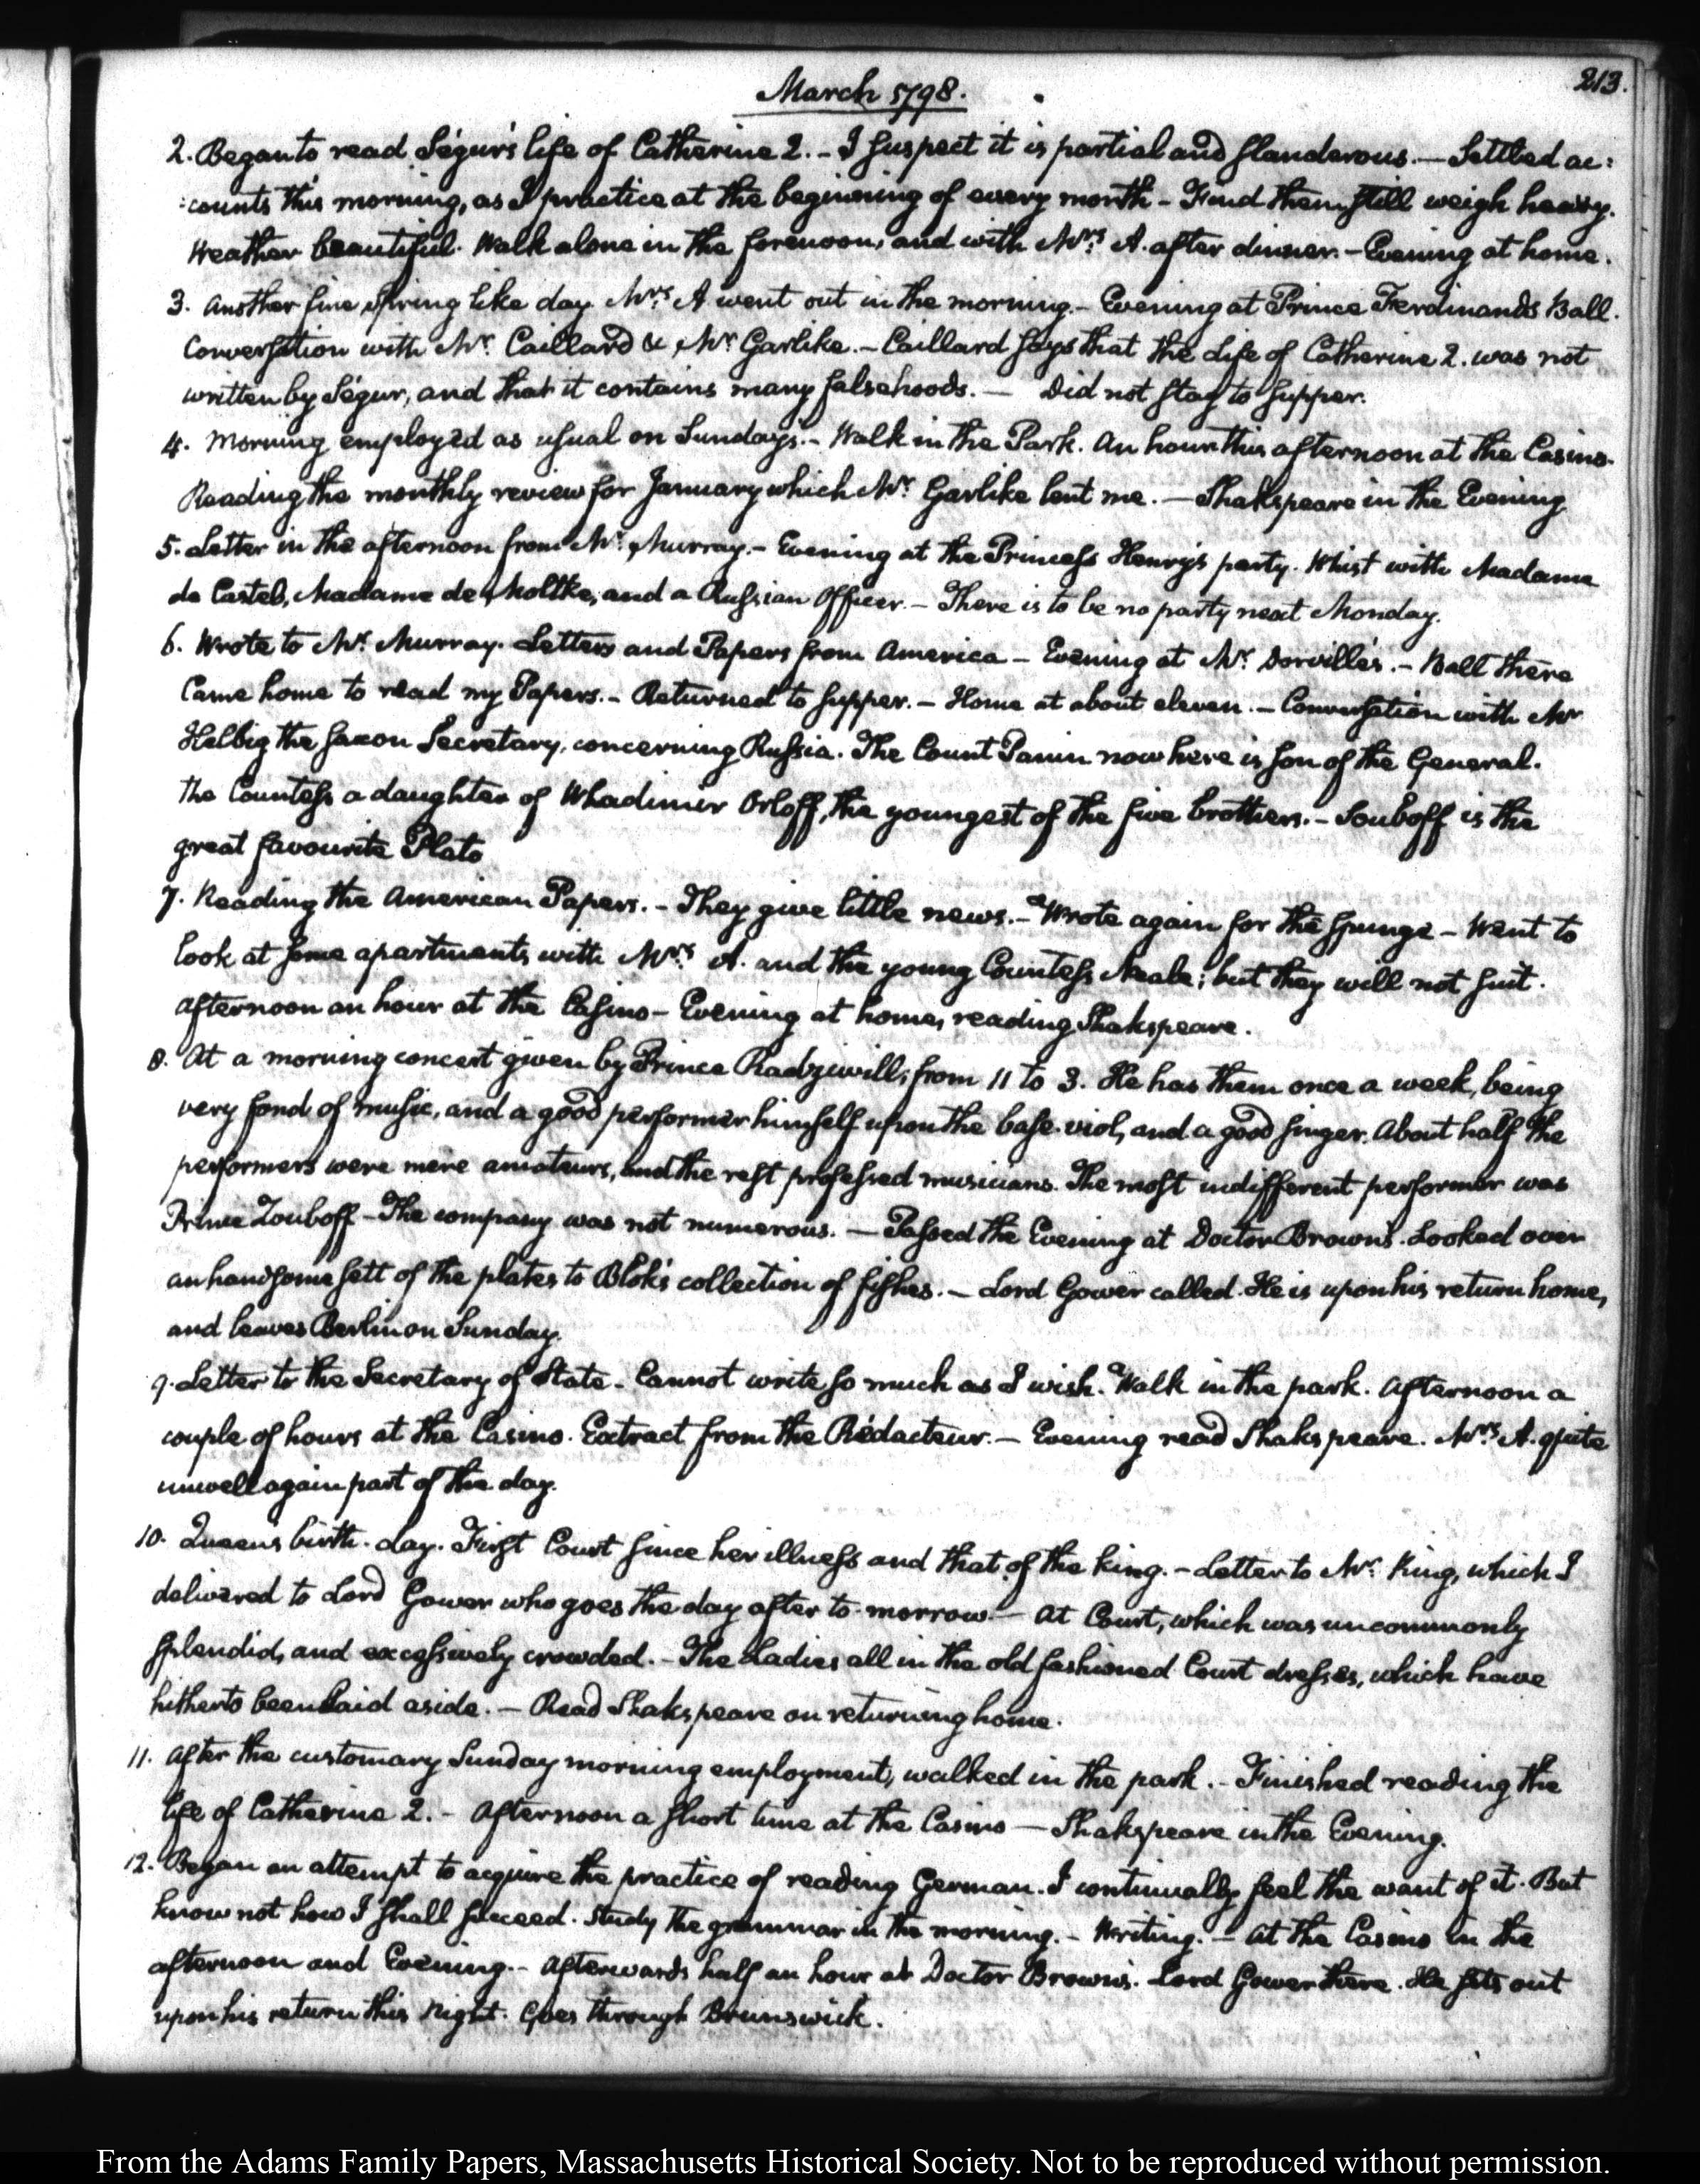 213.
March 1798.
2. Began to read Ségur's life of Catherine 2. - I suspect it is partial and slanderous. — Settled ac:
:counts this morning, as I practice at the beginning of every month - Find them still weigh heavy.
Weather beautiful. Walk alone in the forenoon, and with Mrs. A. after dinner. - Evening at home.
3. Another fine spring like day. Mrs. A went out in the morning. - Evening at Prince Ferdinands Ball.
Conversation with Mr. Caillard & Mr. Garlike. - Caillard says that the Life of Catherine 2. was not
written by Ségur, and that it contains many falsehoods. — Did not stay to supper.
4. Morning employed as usual on Sundays. - Walk in the Park. An hour this afternoon at the Casino.
Reading the monthly review for January which Mr. Garlike lent me. — Shakspeare in the Evening
5. Letter in the afternoon from Mr. Murray. - Evening at the Princess Henry's party. Whist with Madame
de Castel, Madame de Moltke, and a Russian Officer. - There is to be no party next Monday.
6. Wrote to Mr. Murray. Letters and Papers from America - Evening at Mr. Dorville's. - Ball there
Came home to read my Papers. - Returned to supper. - Home at about eleven. - Conversation with Mr
Helbig the Saxon Secretary, concerning Russia. The Count Panin now here is son of the General.
The Countess a daughter of Whadimir Orloff, the youngest of the five brothers. - Souboff is the
great favourite Plato
7. Reading the American Papers. - They give little news. - Wrote again for the spunge - Went to
look at some apartments with Mrs. A. and the young Countess Neale; but they will not suit.
Afternoon an hour at the Casino - Evening at home, reading Shakspeare.
8. At a morning concert given by Prince Radziwill, from 11 to 3. He has them once a week, being
very fond of music, and a good performer himself upon the base-viol, and a good singer. About half the
performers were mere amateurs, and the rest professed musicians. The most indifferent performer was
Prince Zouboff - The company was not numerous. — Passed the Evening at Doctor Brown's. Looked over
an handsome sett of the plates to Blok's collection of fishes. — Lord Gower called. He is upon his return home,
and leaves Berlin on Sunday.
9. Letter to the Secretary of State - Cannot write so much as I wish. Walk in the park. Afternoon a
couple of hours at the Casino. Extract from the Rédacteur. — Evening read Shakspeare. Mrs. A. quite
unwell again part of the day.
10. Queens birth-day. First Court since her illness and that of the King. - Letter to Mr. King, which I
delivered to Lord Gower who goes the day after to-morrow. — At Court, which was uncommonly
splendid, and excessively crowded. - The Ladies all in the old fashioned Court dresses, which have
hitherto been laid aside. — Read Shakspeare on returning home.
11. After the customary Sunday morning employment, walked in the park. - Finished reading the
life of Catherine 2. - Afternoon a short time at the Casino — Shakspeare in the Evening.
12. Began an attempt to acquire the practice of reading German. I continually feel the want of it. But
know not how I shall succeed. Study the grammar in the morning. - Writing. — At the Casino in the
afternoon and Evening. - Afterwards half an hour at Doctor Brown's. Lord Gower there. He sets out
upon his return this night. Goes through Brunswick.
From the Adams Family Papers, Massachusetts Historical Society. Not to be reproduced without permission.